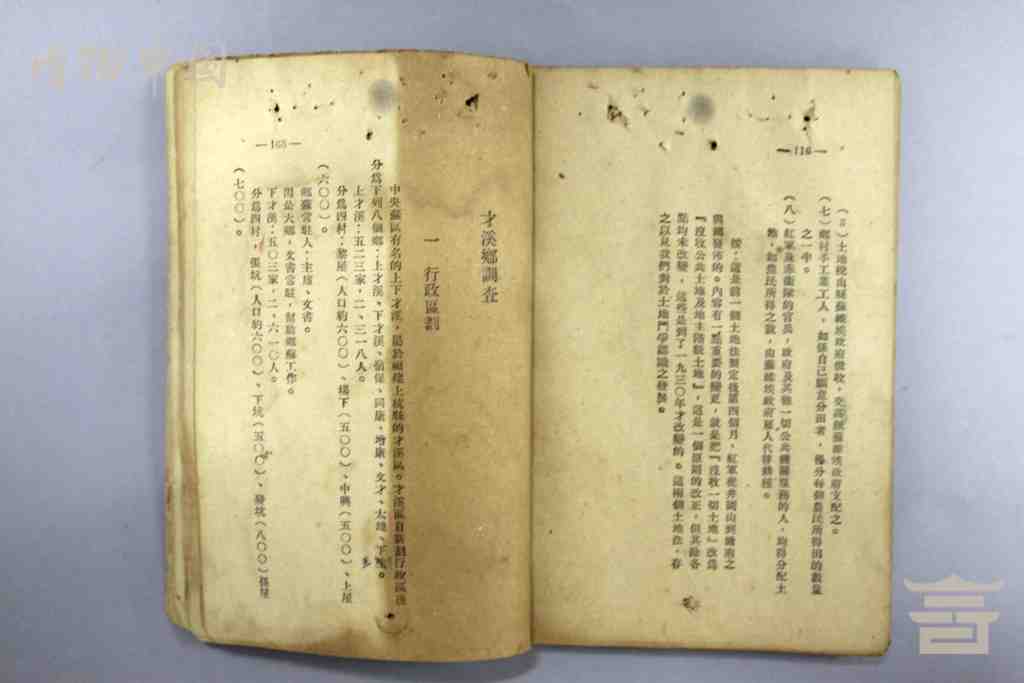 —116—
（3）土地稅由縣蘇維埃政府徵收，交高級蘇維埃政府支配之。
（七）鄉村手工業工人，如係自己願意分田者，得分每個農民所得田的數量
之一半。
（八）紅軍及赤衛隊的官兵，政府及其他一切公共機關服務的人，均得分配土
地，如農民所得之數，由蘇維埃政府雇人代替耕種。
按：這是前一個土地法製定後第四個月，紅軍從井岡山到贛南之
興國發佈的。內容有一點重要的變更，就是把『沒收一切土地』改爲
『沒收公共土地及地主階級土地』，這是一個原則的改正。但其餘各
點均未改變，這些是到了一九三〇年才改變的。這兩個土地法，存
之以見我們對於土地鬥爭認識之發展。
—165—
才溪鄉調查
一　行政區劃
中央蘇區有名的上下才溪，屬於福建上杭縣的才溪區。才溪區自新劃行政區後
分爲下列八個鄉：上才溪、下才溪、同康、文才、大地、下
上才溪：五二三家，二、三一八人。
分爲四村：雷屋（人口約六〇〇）、楊下（五〇〇）、中興（五〇〇）、上屋
（六〇〇）。
鄉蘇常駐人：主席、文書。
因是大鄉，文書常駐，幫助鄉蘇工作。
下才溪：五〇三家，二、六一〇人。
分爲四村，張坑（人口約六〇〇）、下坑（五〇〇）、發坑（八〇〇）孫屋
（七〇〇）。